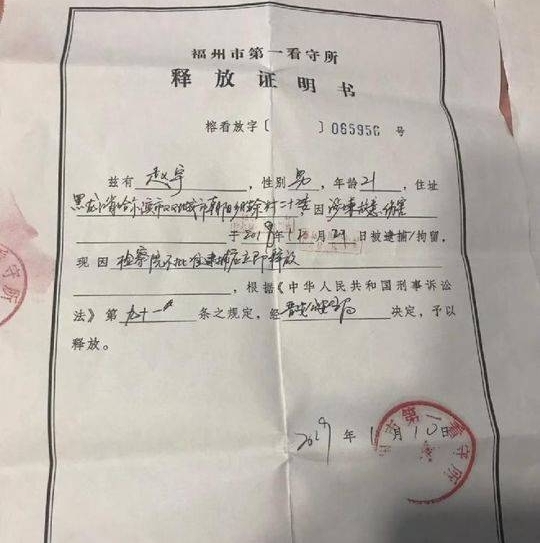 福州市第一看守所
释放证明书
榕看放字〔 〕065956 号
兹有 赵宇 ,性别 男 ,年龄 21 ,住址
黑龙江省哈尔滨市 城市朝阳乡 村二十委 ,因 涉嫌故意伤害
于 201 年 12 月 29 日被逮捕/拘留,
现因 检察院不批准逮捕应立即释放
,根据《中华人民共和国刑事诉讼
法》第 九十一 条之规定,经 晋安公安分局 决定,予以
释放。
2019 年 1 月 10 日
第一看守所
守所